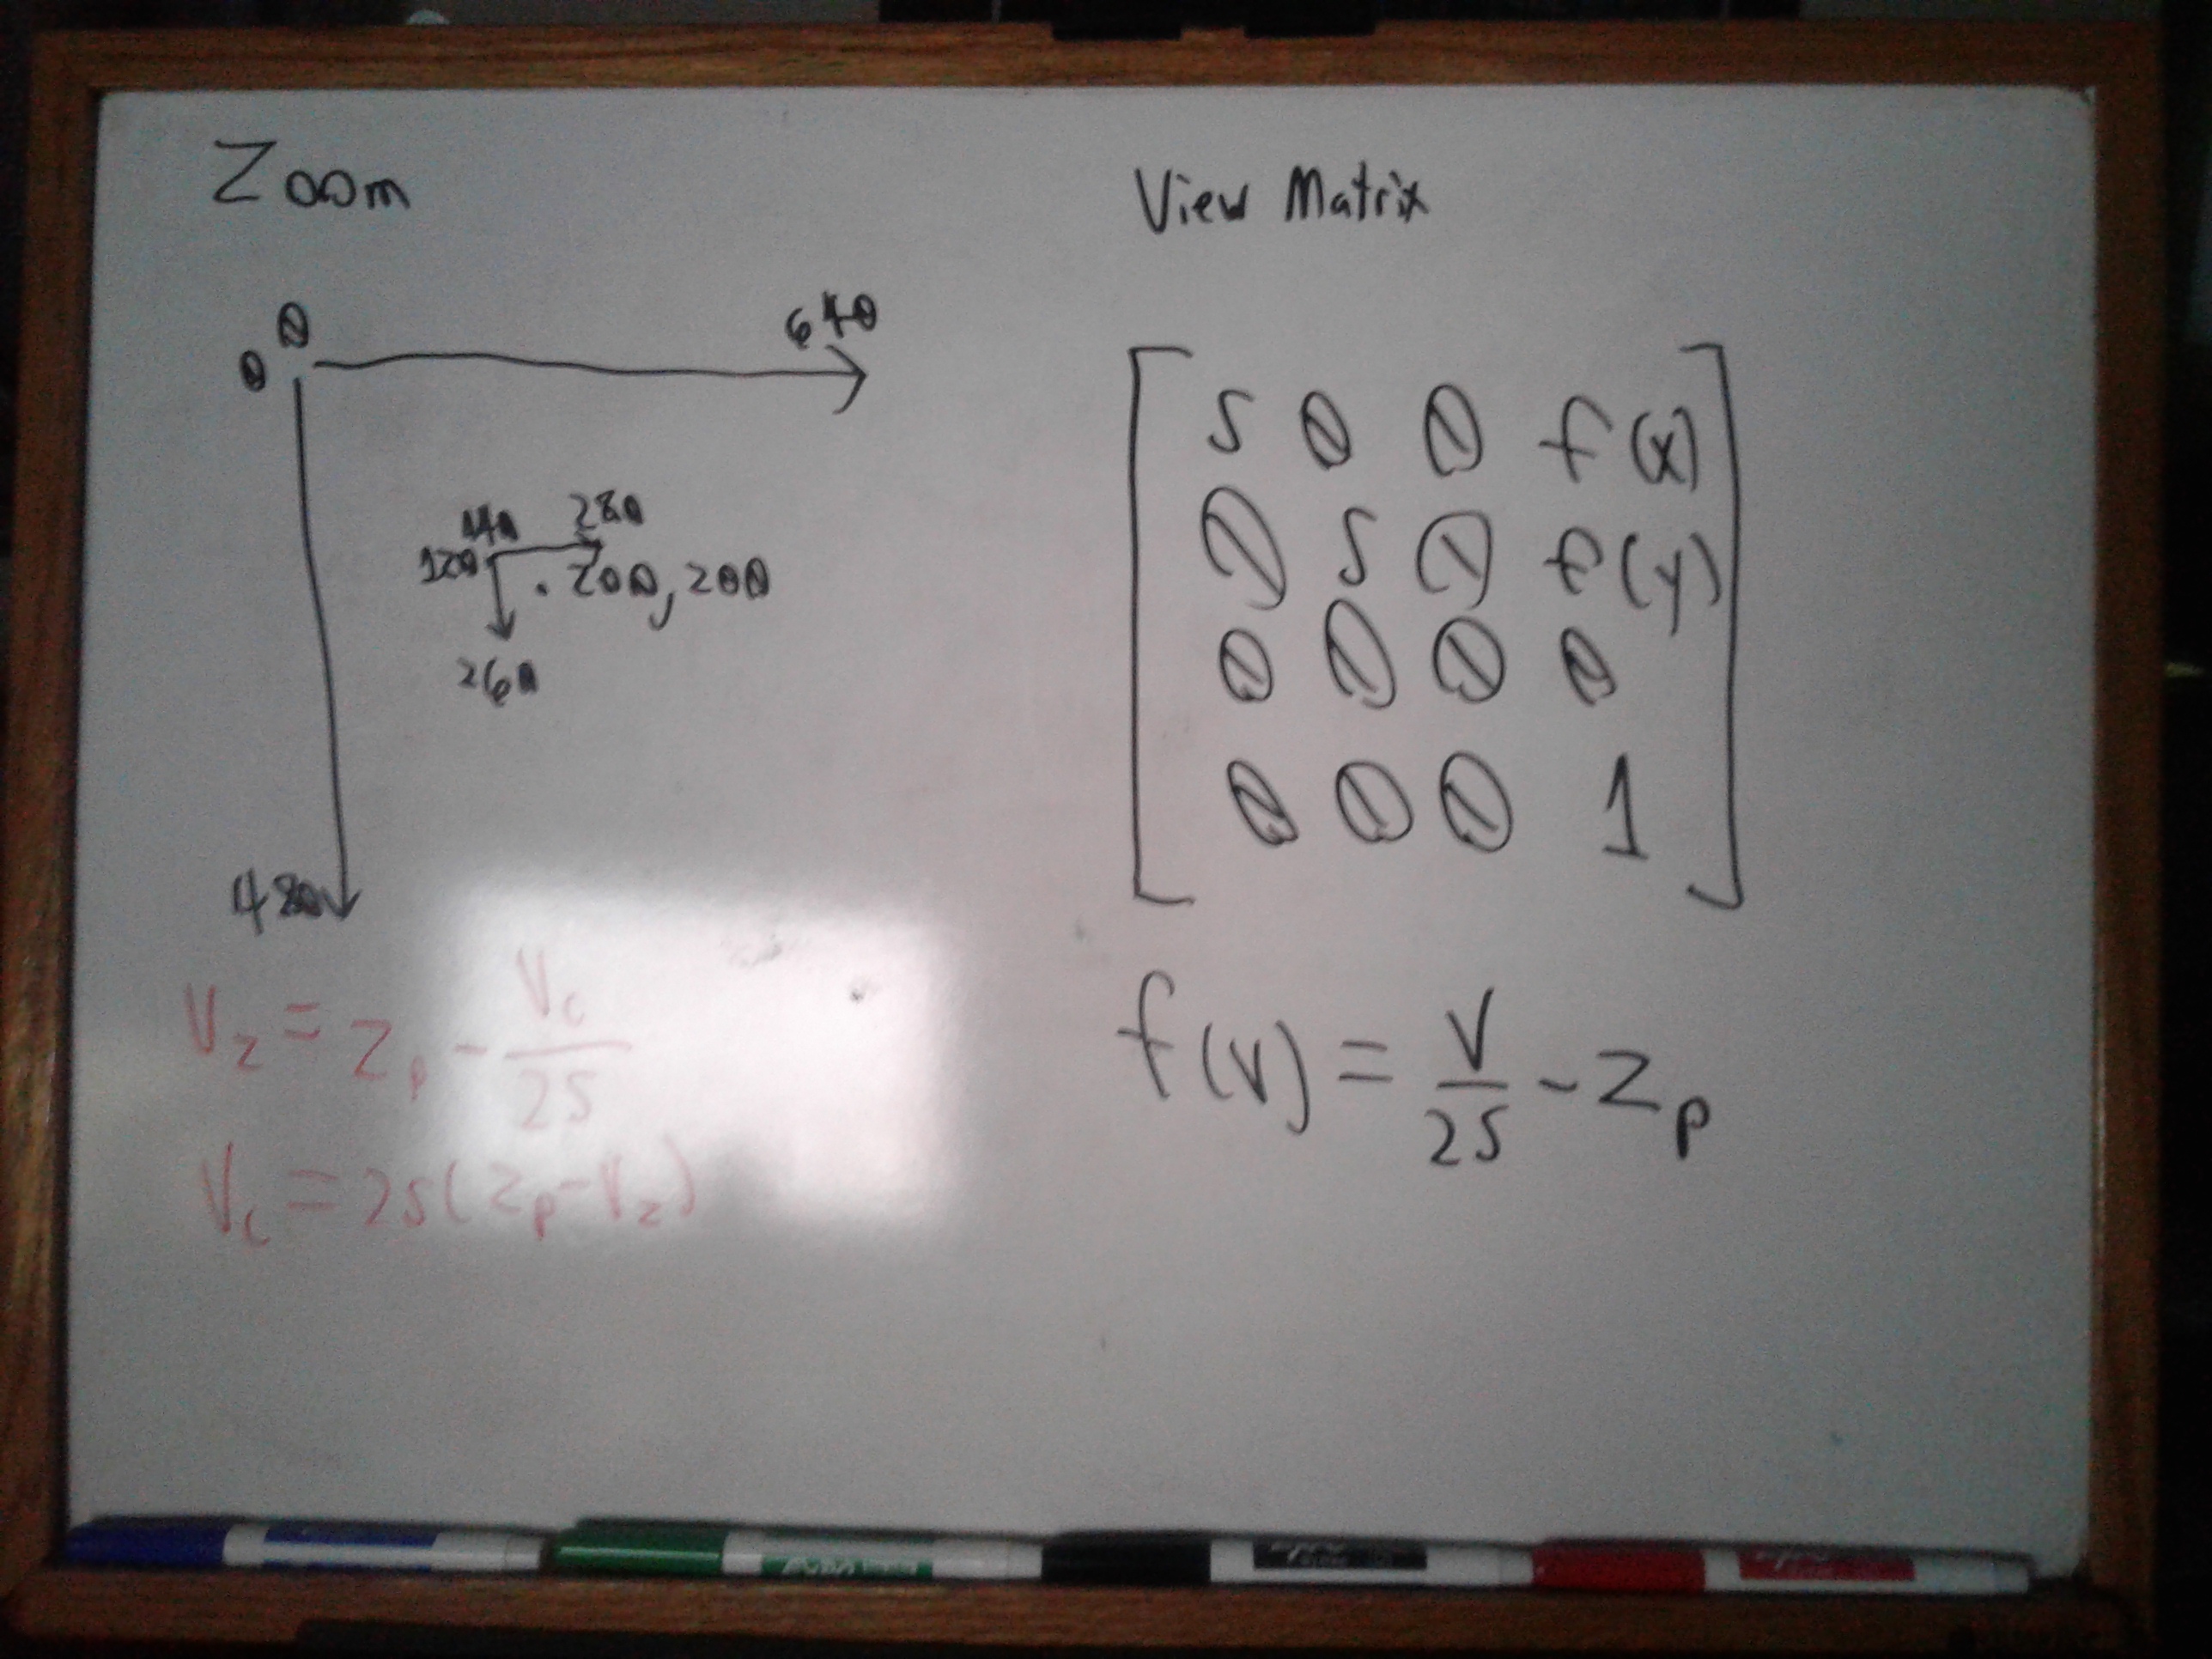 Zoom
0
0
640
140
280
120
. 200, 200
260
480
V_z = z_p - V_c / 2S
V_c = 2S(z_p - V_z)
View Matrix
S 0 0 f(x)
0 S 0 f(y)
0 0 0 0
0 0 0 1
f(v) = V / 2S - z_p